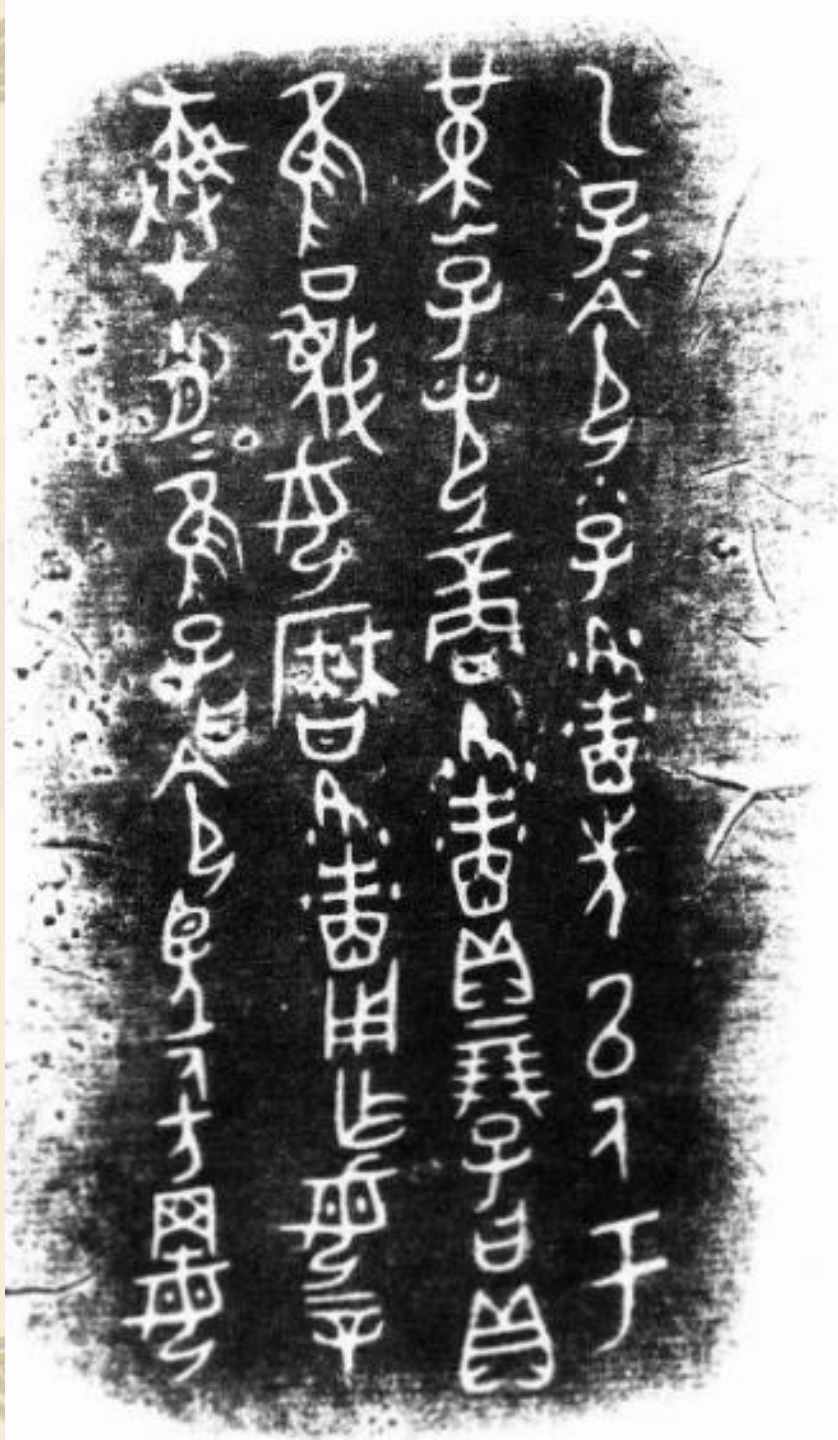 乙巳子令小子𠭯先以人于
堇子光商𠭯貝二朋子曰貝
隹丁蔑女曆𠭯用乍母辛
彝才十月二隹子曰令望人方